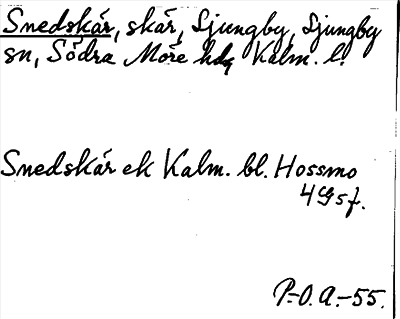 Snedskär, skär, Ljungby, Ljungby
sn, Södra Möre hd, Kalm. l.
Snedskär ek Kalm. bl. Hossmo
4G5f.
P.-O. A.-55.